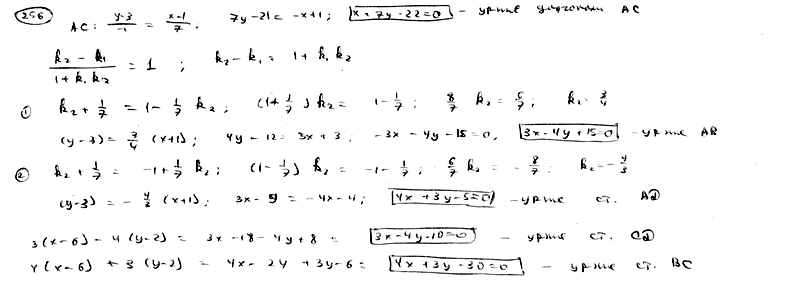 256
AC: (y-3)/(-1) = (x-1)/7 ; 7y-21 = -x+1 ; x+7y-22=0 - ур-ние диагонали AC
(k₂ - k₁)/(1+k₁k₂) = 1 ; k₂ - k₁ = 1 + k₁k₂
① k₂ + 1/7 = 1 - 1/7 k₂ ; (1+1/7) k₂ = 1 - 1/7 ; 8/7 k₂ = 6/7 ; k₂ = 3/4
(y-3) = 3/4 (x+1) ; 4y-12 = 3x+3 ; -3x-4y-15=0, 3x-4y+15=0 - ур-ние AB
② k₂ + 1/7 = -1 + 1/7 k₂ ; (1 - 1/7) k₂ = -1 - 1/7 ; 6/7 k₂ = - 8/7 ; k₂ = - 4/3
(y-3) = - 4/3 (x+1) ; 3x-9 = -4x-4 ; 4x+3y-5=0 - ур-ние ст. AD
3(x-6) - 4(y-2) = 3x-18-4y+8 = 3x-4y-10=0 - ур-ние ст. CD
4(x-6) + 3(y-2) = 4x-24+3y-6 = 4x+3y-30=0 - ур-ние ст. BC